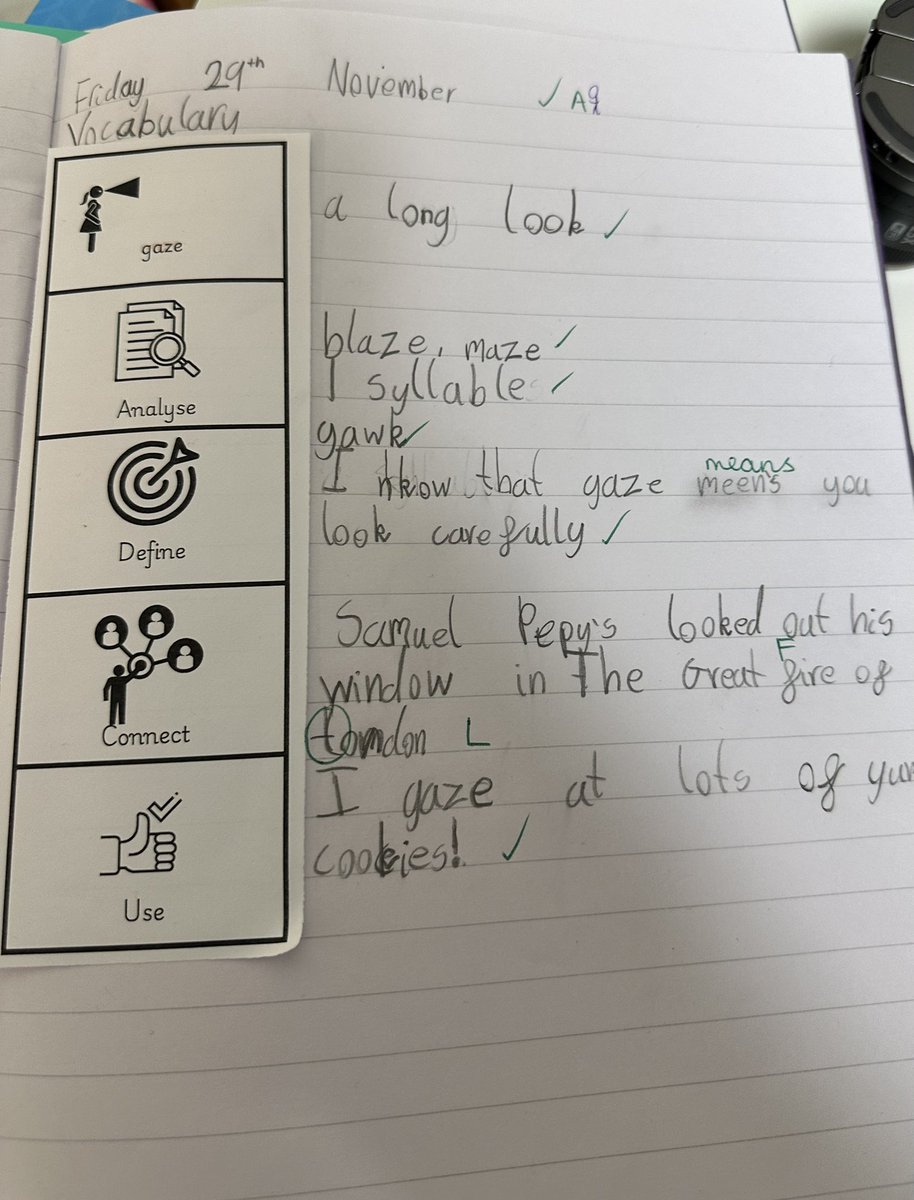 Friday 29th November ✓ Aq
Vocabulary
gaze
a long look ✓
Analyse
blaze, maze ✓
1 syllable ✓
gawk ✓
Define
means
I know that gaze meens you
look carefully ✓
Connect
Samuel Pepy's looked out his
F
window in The Great fire of
tondon L
Use
I gaze at lots of
cookies! ✓